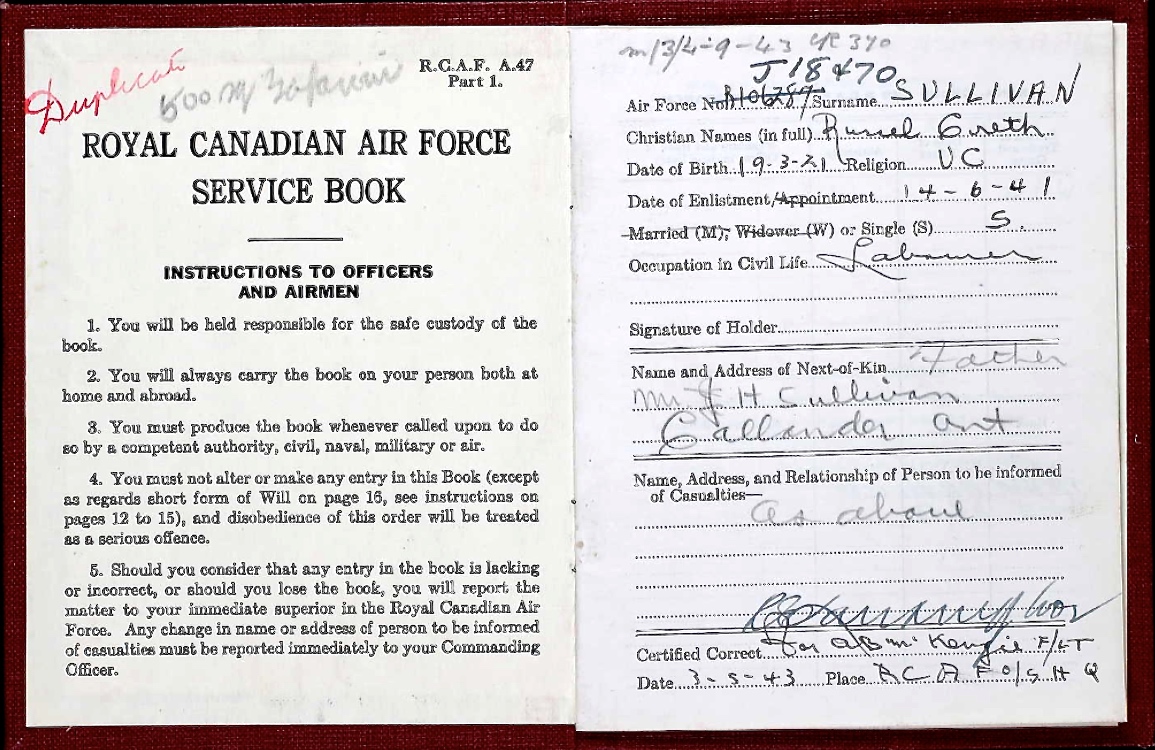 Duplicate
R.C.A.F. A.47
Part 1.
ROYAL CANADIAN AIR FORCE
SERVICE BOOK
INSTRUCTIONS TO OFFICERS
AND AIRMEN
1. You will be held responsible for the safe custody of the
book.
2. You will always carry the book on your person both at
home and abroad.
3. You must produce the book whenever called upon to do
so by a competent authority, civil, naval, military or air.
4. You must not alter or make any entry in this Book (except
as regards short form of Will on page 16, see instructions on
pages 12 to 15), and disobedience of this order will be treated
as a serious offence.
5. Should you consider that any entry in the book is lacking
or incorrect, or should you lose the book, you will report the
matter to your immediate superior in the Royal Canadian Air
Force. Any change in name or address of person to be informed
of casualties must be reported immediately to your Commanding
Officer.
J18470
Air Force No. R106789 Surname SULLIVAN
Christian Names (in full) Russel Greth
Date of Birth 19-3-21 Religion UC
Date of Enlistment/Appointment 14-6-41
Married (M), Widower (W) or Single (S) S.
Occupation in Civil Life Labourer
Signature of Holder
Name and Address of Next-of-Kin Father
Mr J H Sullivan
Callander Ont
Name, Address, and Relationship of Person to be informed
of Casualties—
As above
Certified Correct for AB McKenzie F/LT
Date 3-5-43 Place RCAF O/S H Q